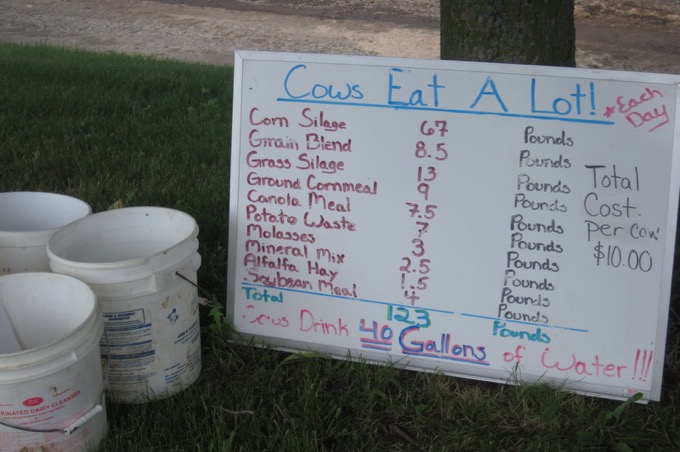 Cows Eat A Lot!
*Each Day
Corn Silage 67 Pounds
Grain Blend 8.5 Pounds
Grass Silage 13 Pounds
Ground Cornmeal 9 Pounds
Canola Meal 7.5 Pounds
Potato Waste 7 Pounds
Molasses 3 Pounds
Mineral Mix 2.5 Pounds
Alfalfa Hay 1.5 Pounds
Soybean Meal 4 Pounds
Total 123 Pounds
Total
Cost
per cow
$10.00
Cows Drink 40 Gallons of Water!!!
DAIRY CLEANSER